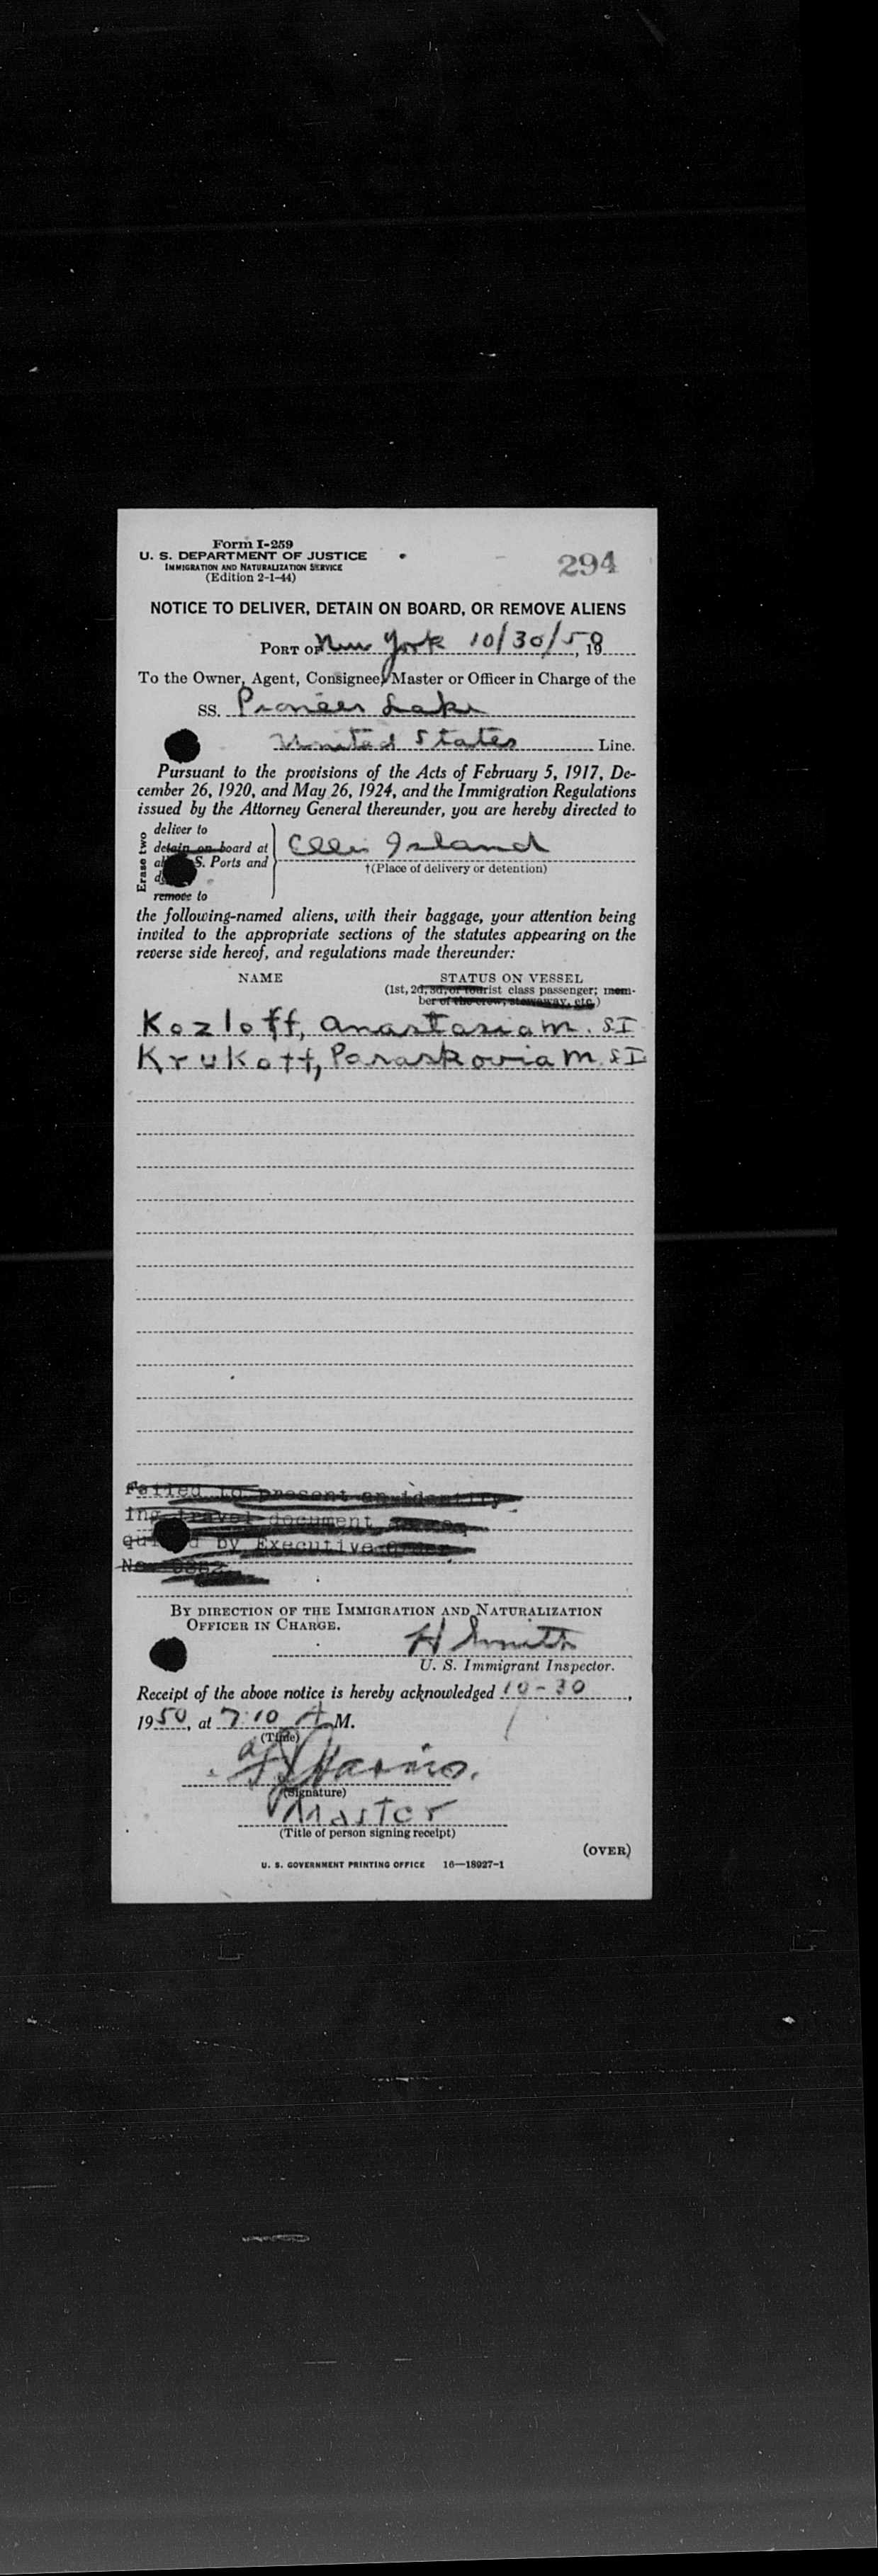 Form I-259
U. S. DEPARTMENT OF JUSTICE
IMMIGRATION AND NATURALIZATION SERVICE
(Edition 2-1-44)
294
NOTICE TO DELIVER, DETAIN ON BOARD, OR REMOVE ALIENS
PORT OF New York 10/30/50, 19
To the Owner, Agent, Consignee, Master or Officer in Charge of the
SS. Pioneer Lake
United States Line.
Pursuant to the provisions of the Acts of February 5, 1917, De-
cember 26, 1920, and May 26, 1924, and the Immigration Regulations
issued by the Attorney General thereunder, you are hereby directed to
Erase two
deliver to
detain on board at
S. Ports and
remove to
Ellis Island
†(Place of delivery or detention)
the following-named aliens, with their baggage, your attention being
invited to the appropriate sections of the statutes appearing on the
reverse side hereof, and regulations made thereunder:
NAME STATUS ON VESSEL
(1st, 2d, 3d, or tourist class passenger; mem-
ber of the crew; stowaway, etc.)
Kozloff, Anastasia M. SI
Krukoff, Paraskovia M. SI
Failed to present an identify
ing travel document
by Executive
No.
BY DIRECTION OF THE IMMIGRATION AND NATURALIZATION
OFFICER IN CHARGE.
H Smith
U. S. Immigrant Inspector.
Receipt of the above notice is hereby acknowledged 10-30,
1950, at 7:10 A M.
(Time)
Harris.
(Signature)
Master
(Title of person signing receipt)
(OVER)
U. S. GOVERNMENT PRINTING OFFICE 16—18927-1